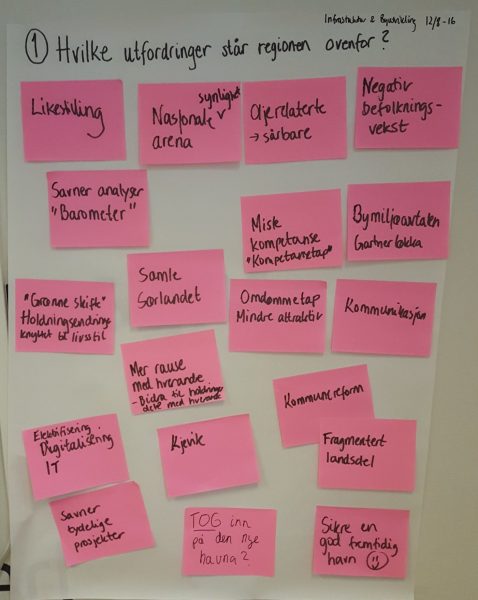 Infrastruktur & Byutvikling 12/8-16
① Hvilke utfordringer står regionen ovenfor?
Likestilling
synlighet
Nasjonale
arena
Oljerelaterte
→ sårbare
Negativ
befolknings-
vekst
Savner analyser
"Barometer"
Miste
kompetanse
"Kompetansetap"
Bymiljøavtalen
Gartnerløkka
"Grønne skifte"
Holdningsendring
knyttet til livsstil
Samle
Sørlandet
Omdømmetap
Mindre attraktiv
Kommunikasjon
Mer rause
med hverandre
- Bidra til
dele med hverandre
Kommunereform
Elektrifisering
Digitalisering
IT
Kjevik
Fragmentert
landsdel
Savner
tydelige
prosjekter
TOG inn
på den nye
havna?
Sikre en
god fremtidig
havn ☺